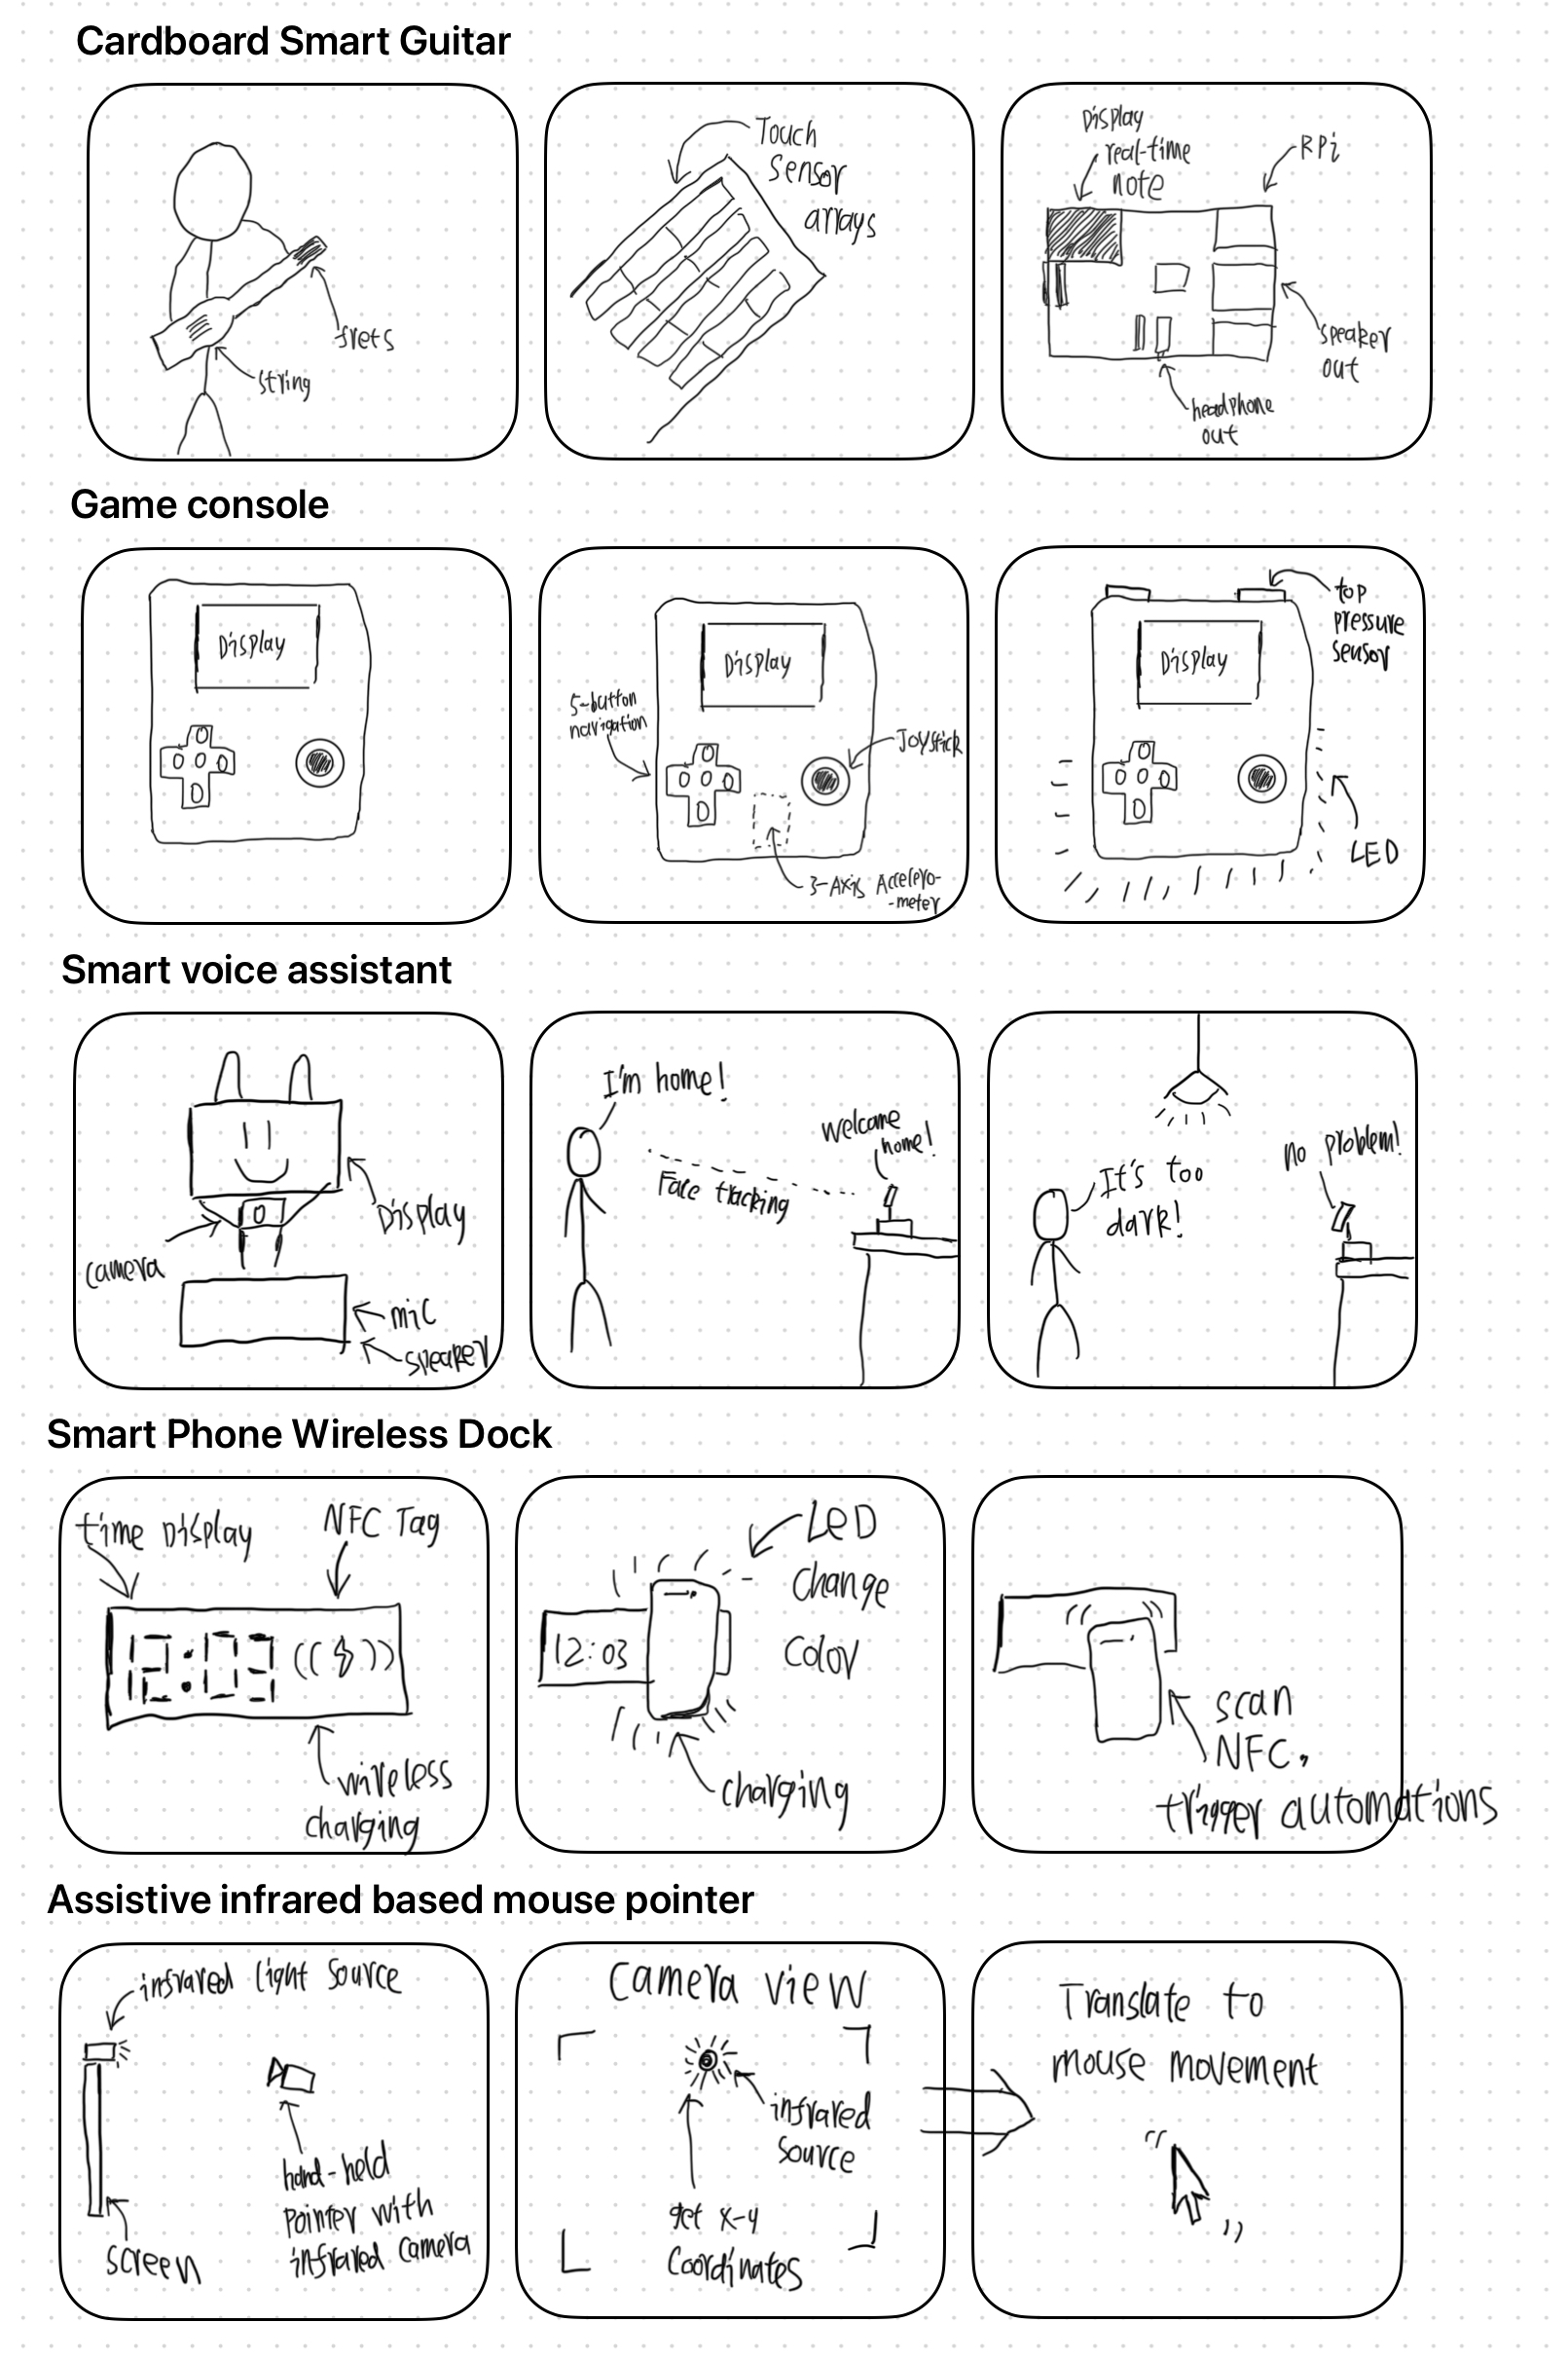 Cardboard Smart Guitar
frets
string
Touch
sensor
arrays
Display
real-time
note
RPi
speaker
out
headphone
out
Game console
Display
Display
5-button
navigation
Joystick
3-Axis Accelero-
-meter
Display
top
pressure
sensor
LED
Smart voice assistant
Display
camera
mic
speaker
I'm home!
Welcome
home!
Face tracking
It's too
dark!
no problem!
Smart Phone Wireless Dock
time Display
NFC Tag
12:03
wireless
charging
LED
change
color
12:03
charging
scan
NFC,
trigger automations
Assistive infrared based mouse pointer
infrared light source
hand-held
pointer with
infrared camera
screen
Camera view
infrared
source
get x-y
coordinates
Translate to
mouse movement